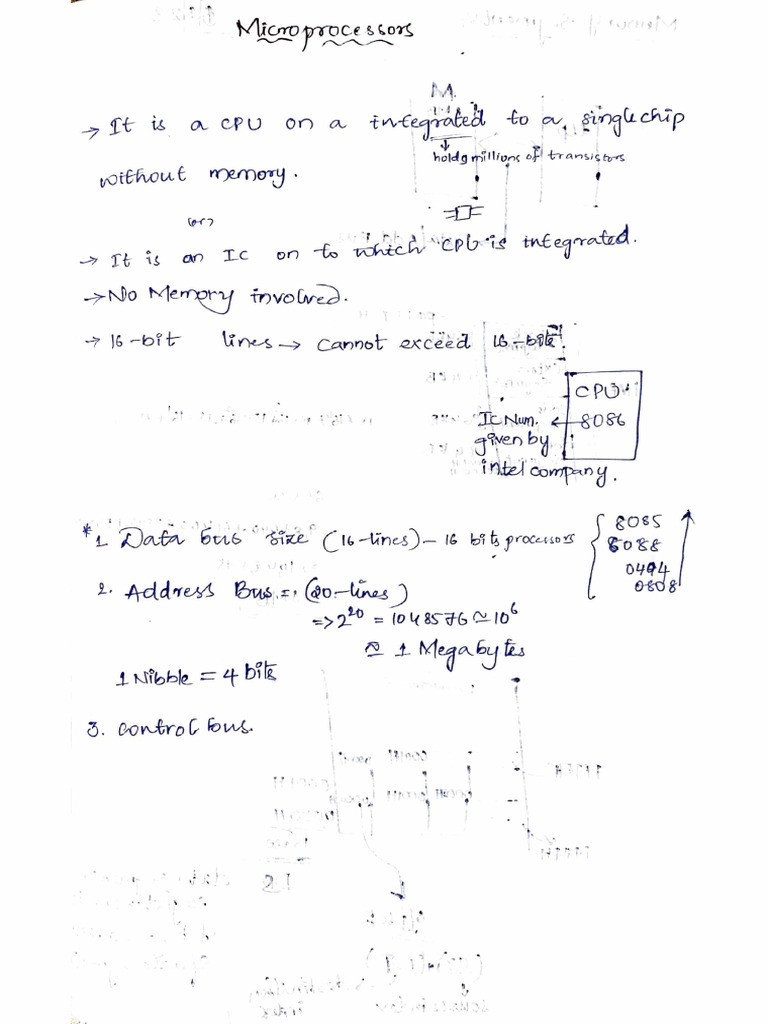 Microprocessors
→ It is a CPU on a integrated to a single chip
↓
holds millions of transistors
without memory.
(or)
→ It is an IC on to which CPU is integrated.
→ No Memory involved.
→ 16-bit lines → cannot exceed 16-bit.
CPU
IC Num. ← 8086
given by
intel company.
*1. Data bus size (16-lines) - 16 bits processors { 8085
8088
0808
2. Address Bus = (20-lines)
=> 2^20 = 1048576 ≃ 10^6
≃ 1 Megabytes
1 Nibble = 4 bits
3. control bus.